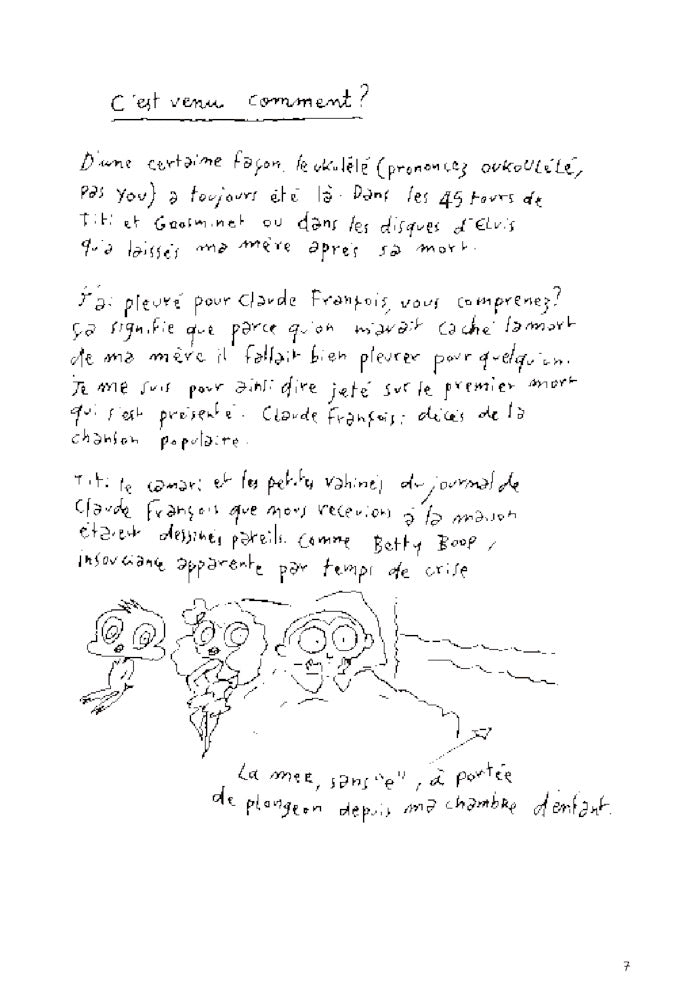 C'est venu comment?
D'une certaine façon, le ukulélé (prononcez OUKOULÉLÉ,
pas you) a toujours été là. Dans les 45 tours de
Titi et Grosminet ou dans les disques d'Elvis
qu'a laissés ma mère après sa mort.
J'ai pleuré pour Claude François, vous comprenez?
Ça signifie que parce qu'on m'avait caché la mort
de ma mère il fallait bien pleurer pour quelqu'un.
Je me suis pour ainsi dire jeté sur le premier mort
qui s'est présenté. Claude François: décès de la
chanson populaire.
Titi le canari et les petites vahinés du journal de
Claude François que nous recevions à la maison
étaient dessinés pareils. Comme Betty Boop,
insouciance apparente par temps de crise
La mer, sans "e", à portée
de plongeon depuis ma chambre d'enfant.
7